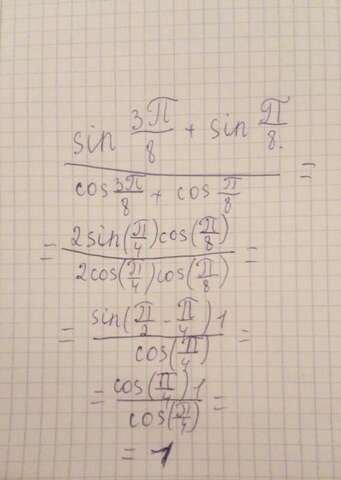 sin 3π/8 + sin π/8.
cos 3π/8 + cos π/8 =
= 2sin(π/4)cos(π/8)
2cos(π/4)cos(π/8) =
= sin(π/2 - π/4) 1
cos(π/4) =
= cos(π/4) 1
cos(π/4) =
= 1